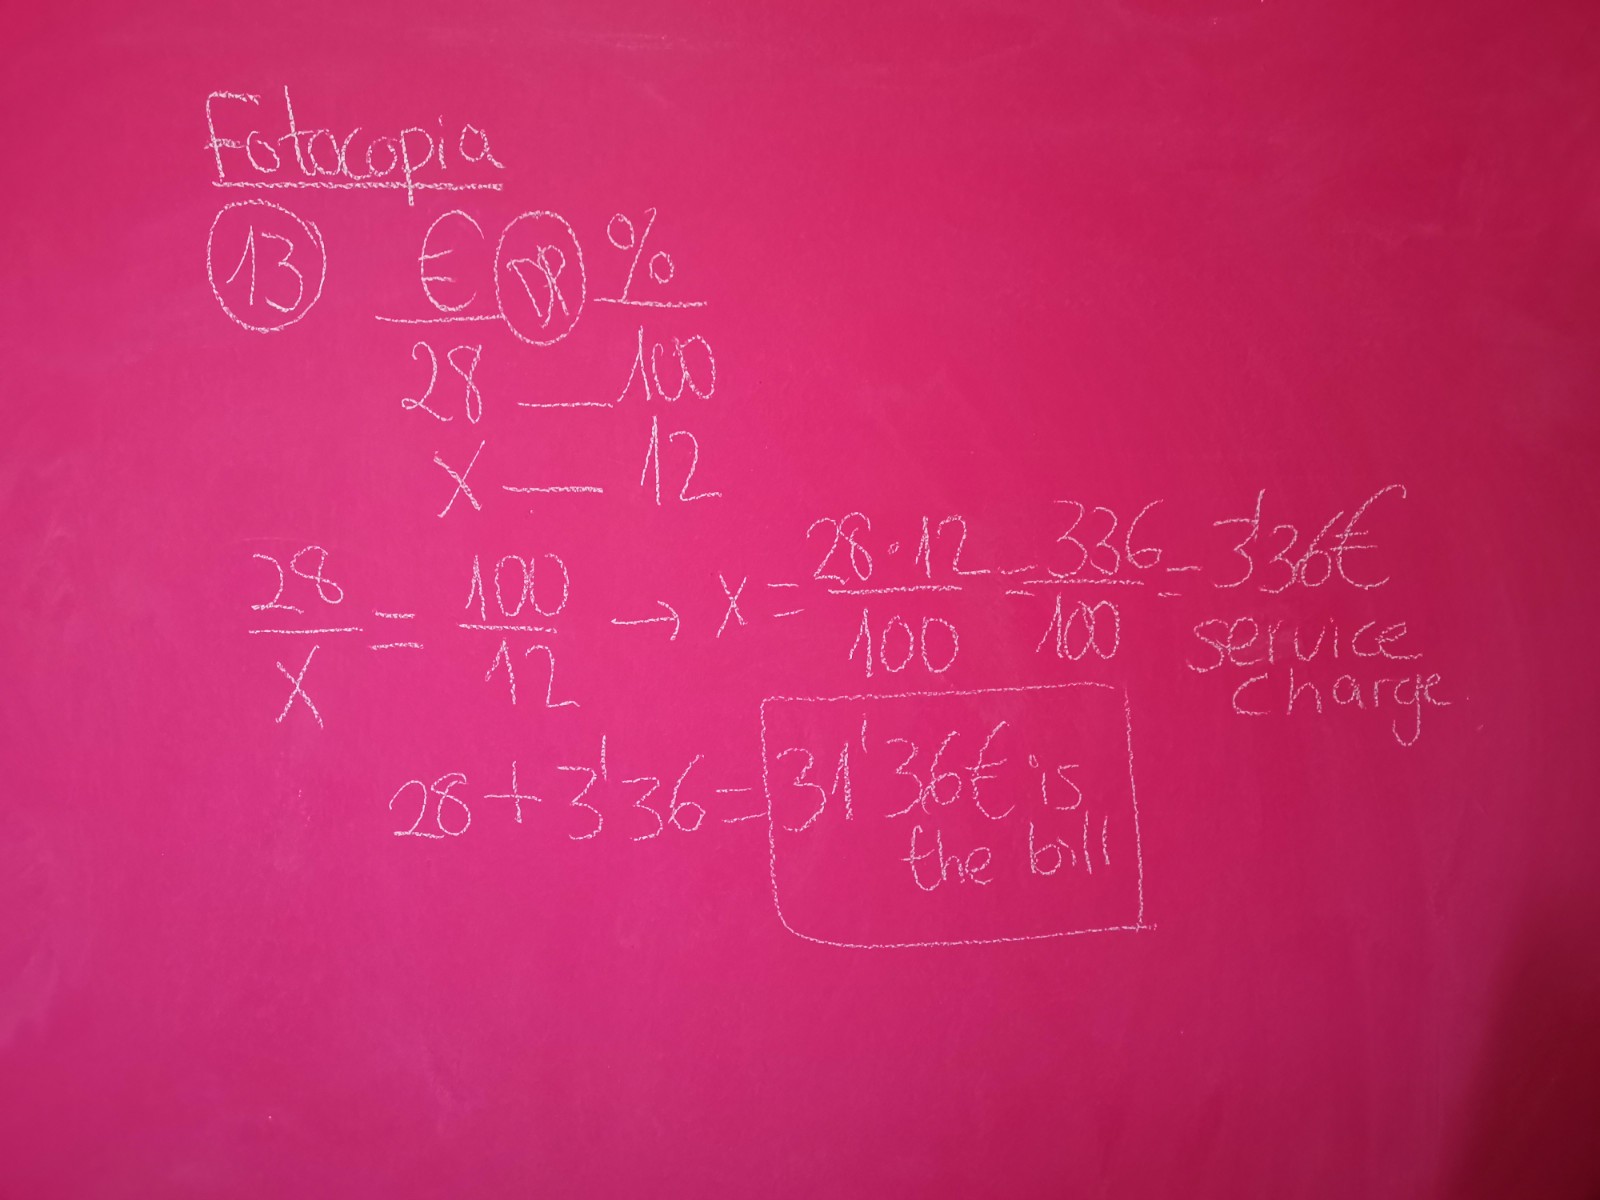 Fotocopia
13 € DP %
28 __ 100
X __ 12
28/X = 100/12 → X = 28·12/100 = 336/100 = 3'36€
service
charge
28 + 3'36 = 31'36€ is
the bill